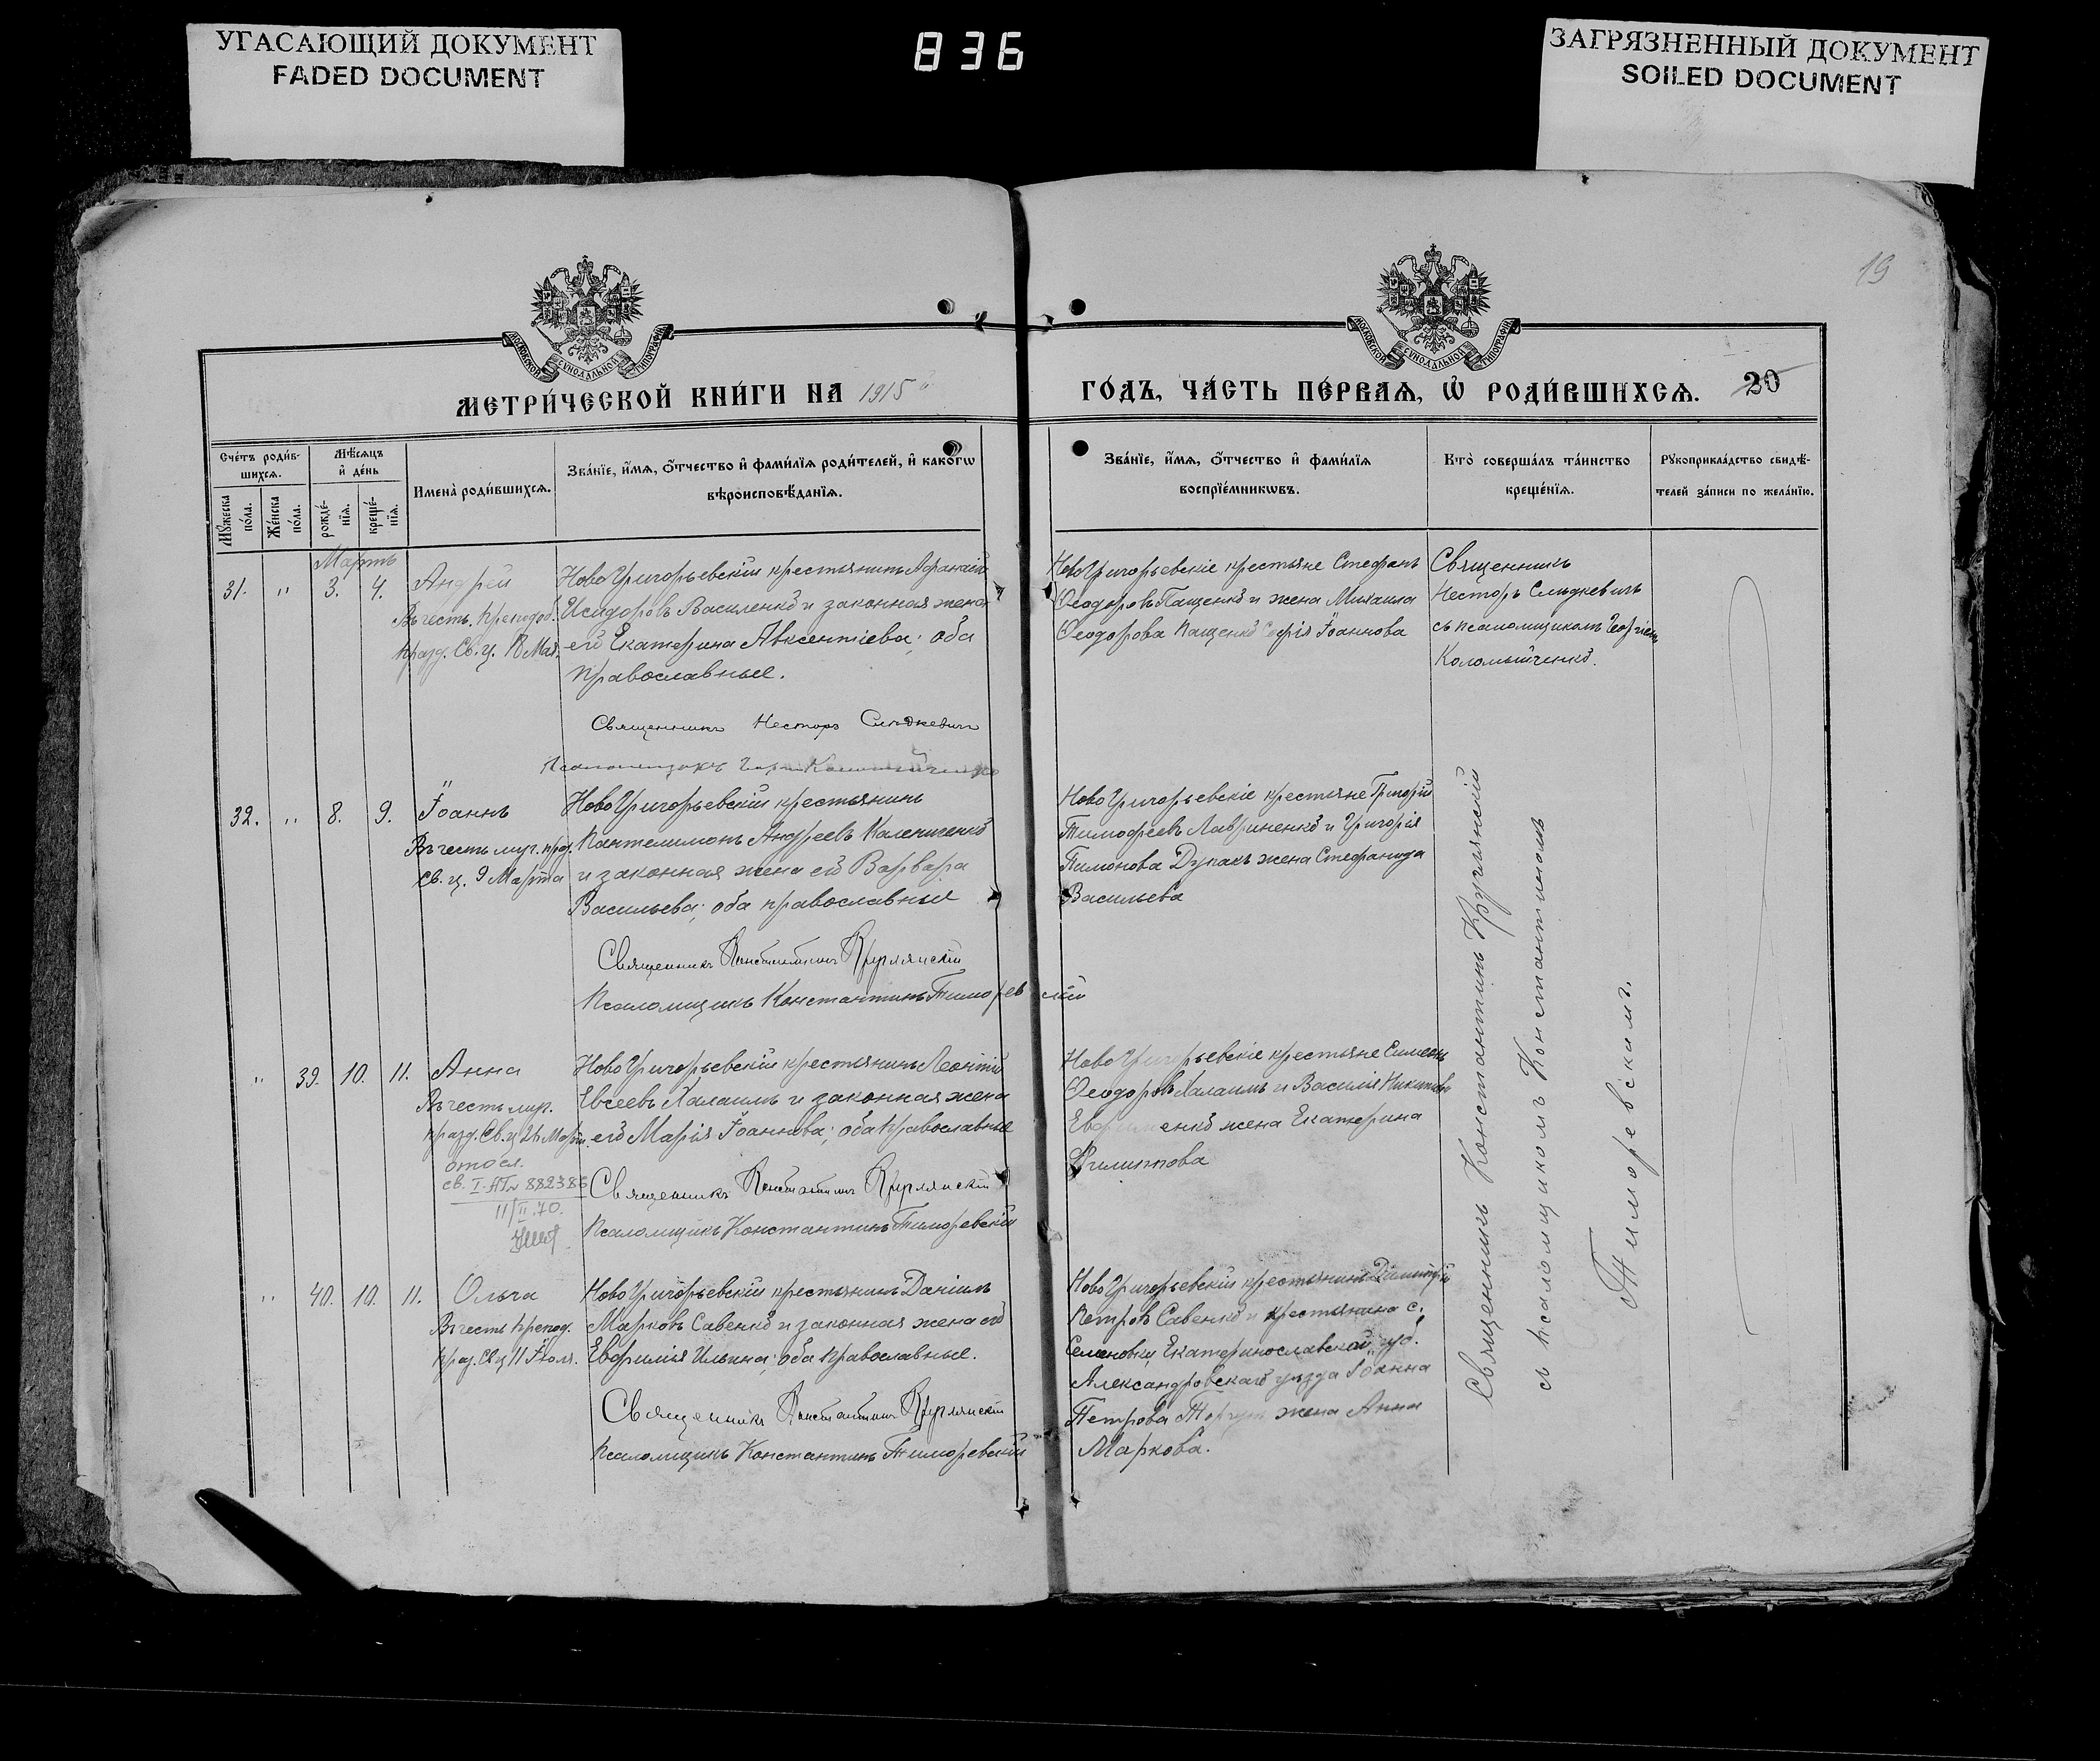 УГАСАЮЩИЙ ДОКУМЕНТ
FADED DOCUMENT
836
ЗАГРЯЗНЕННЫЙ ДОКУМЕНТ
SOILED DOCUMENT
19
МОСКОВСКОЙ СУНОДАЛЬНОЙ ТИПОГРАФІИ
МОСКОВСКОЙ СУНОДАЛЬНОЙ ТИПОГРАФІИ
МЕТРИ́ЧЕСКОЙ КНИ́ГИ НА 1915
ГО́ДЪ, ЧА́СТЬ ПЕ́РВАѦ, Ѡ҆ РОДИ́ВШИХСѦ. 20
Сче́тъ роди́в-
шихсѧ.
Мꙋ́жеска
по́ла.
Же́нска
по́ла.
Мѣ́сѧцъ
и҆ де́нь
рожде́-
нїѧ.
креще́-
нїѧ.
И҆мена̀ роди́вшихсѧ.
Зва́нїе, и҆́мѧ, ѻ҆́тчество и҆ фами́лїѧ роди́телей, и҆ како́гѡ
вѣроисповѣ́данїѧ.
Зва́нїе, и҆́мѧ, ѻ҆́тчество и҆ фами́лїѧ
воспрїе́мникѡвъ.
Кто̀ соверша́лъ та́инство
креще́нїѧ.
Рꙋкоприкла́дство свидѣ́-
телей за́писи по жела́нїю.
Мартъ
31. " 3. 4. Андрей
Въ честь преподоб.
празд. Св. ц. Мая.
НовоГригорьевскій крестьянинъ Афанасій
Исидоровъ Василенко и законная жена
его Екатерина Авксентіева; оба
православные.
Священникъ Несторъ Слѣдкевичъ
Псаломщикъ Коломытченко
НовоГригорьевскіе крестьяне Стефанъ
Ѳеодоровъ Пащенко и жена Михаила
Ѳеодорова Пащенко Софія Іоаннова
Священникъ
Несторъ Слѣдкевичъ
съ псаломщикомъ Георгіемъ
Коломытченко.
32. " 8. 9. Іоаннъ
Въ честь муч. празд.
св. ц. 9 Марта
НовоГригорьевскій крестьянинъ
Пантелимонъ Андреевъ Каленченко
и законная жена его Варвара
Васильева; оба православные
Священникъ Константинъ Круглянскій
Псаломщикъ Константинъ Тиморевскій
НовоГригорьевскіе крестьяне Григорій
Тимофеевъ Лавриненко и Григорія
Тимонова Дупакъ жена Стефанида
Васильева
" 39. 10. 11. Анна
Въ честь муч.
празд. Св. ц. 26 Март.
св. I-АП № 882386
11/II.70.
НовоГригорьевскій крестьянинъ Леонтій
Евсеевъ Халаимъ и законная жена
его Марія Іоаннова; оба православные
Священникъ Константинъ Круглянскій
Псаломщикъ Константинъ Тиморевскій
НовоГригорьевскіе крестьяне Симеонъ
Ѳеодоровъ Халаимъ и Василія Никитова
жена Екатерина
Филиппова
" 40. 10. 11. Ольга
Въ честь препод.
празд. Св. ц. 11 Іюля.
НовоГригорьевскій крестьянинъ Даніилъ
Марковъ Савенко и законная жена его
Евфимія Ильина; оба православные.
Священникъ Константинъ Круглянскій
Псаломщикъ Константинъ Тиморевскій
НовоГригорьевскій крестьянинъ Димитрій
Петровъ Савенко и крестьянина с.
Семеновки Екатеринославской губ.
Александровскаго уѣзда Іоанна
Петрова жена Анна
Маркова.
Священникъ Константинъ Круглянскій
съ псаломщикомъ Константиномъ
Тиморевскимъ.